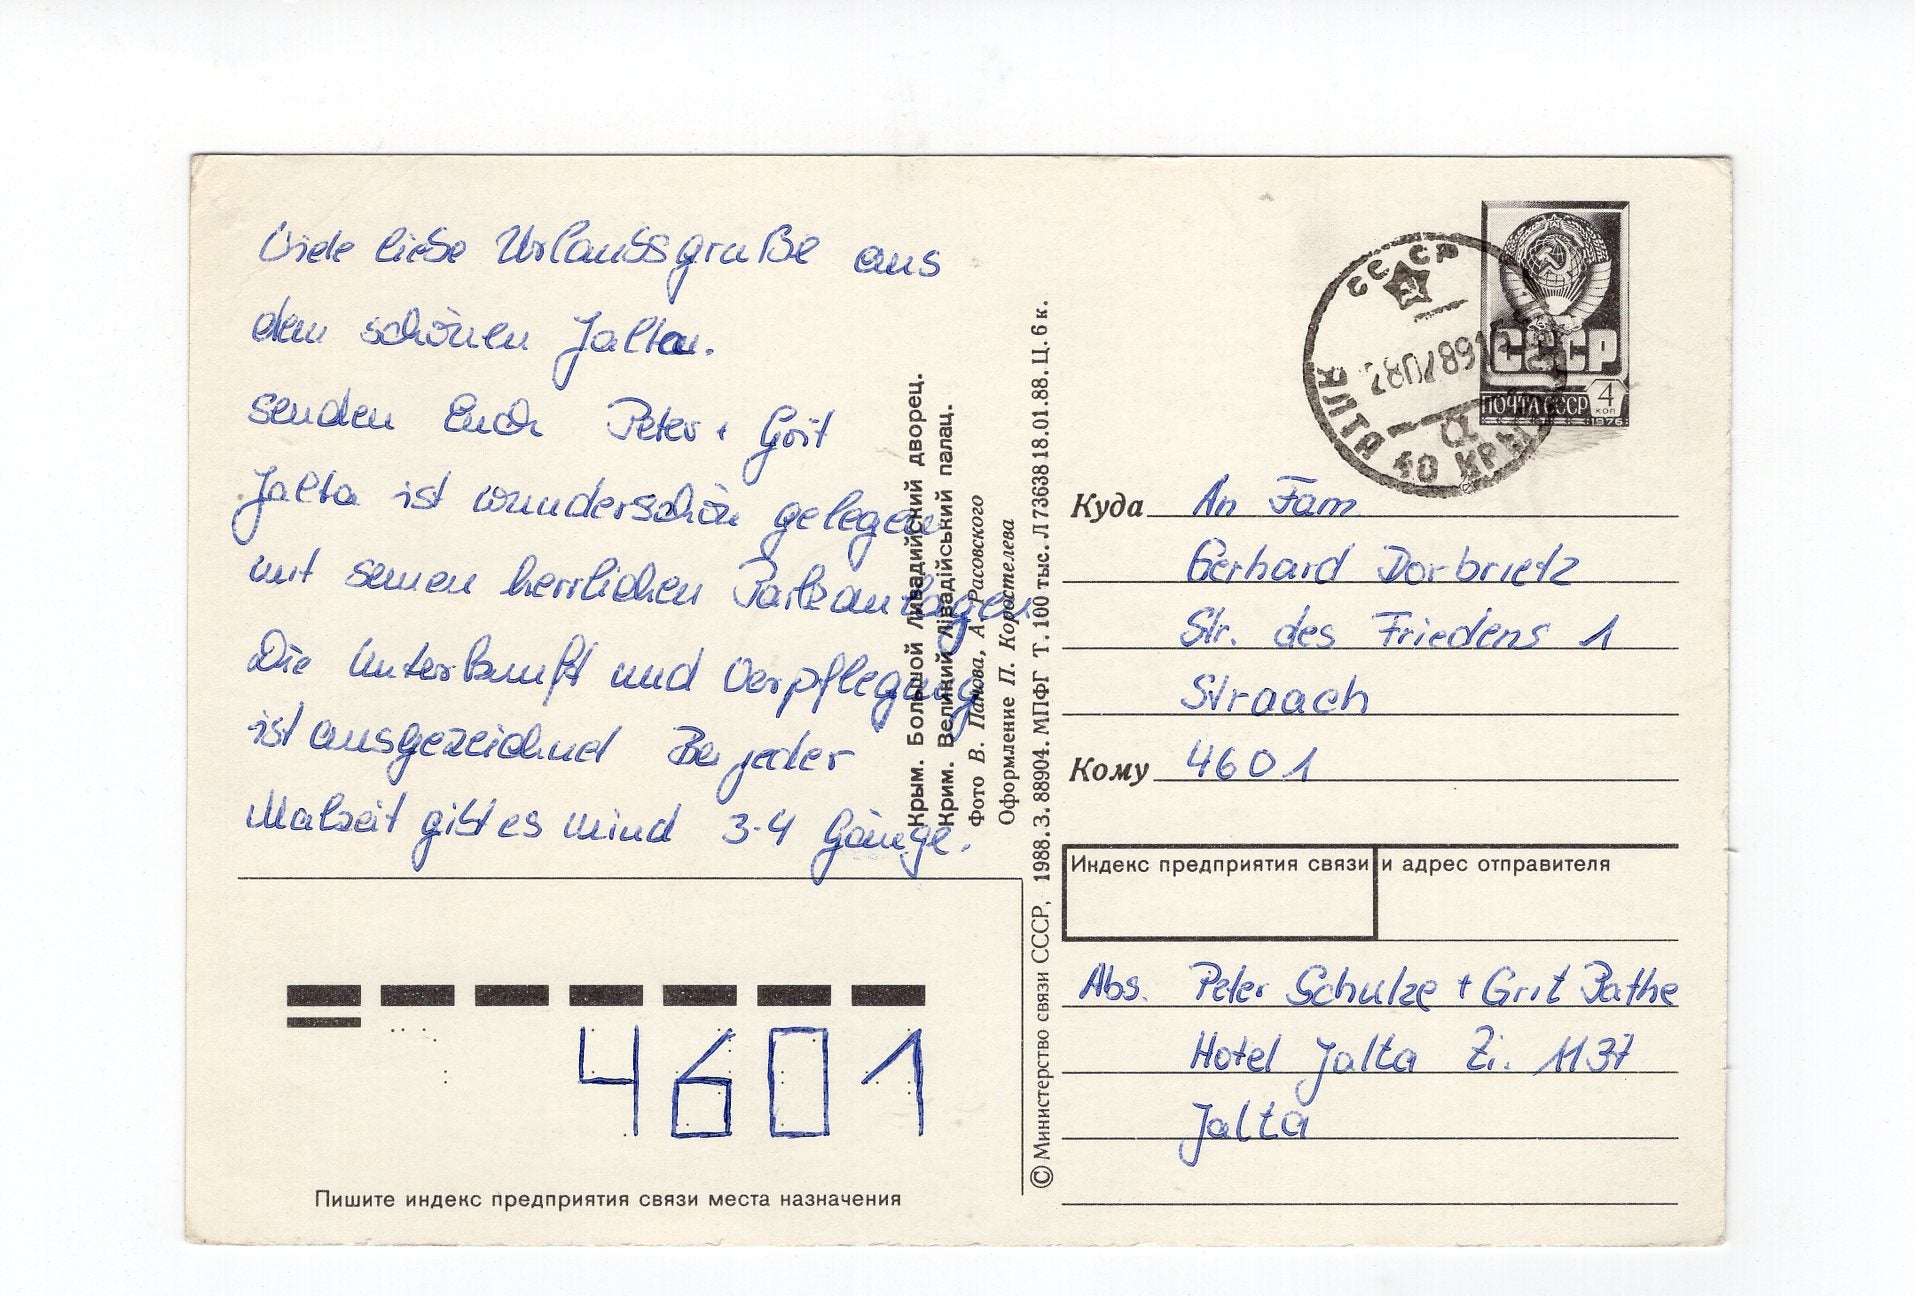 Viele liebe Urlaubsgruße aus
dem schönen Jalta.
senden Euch Peter + Grit
Jalta ist wunderschön gelegen
mit seinen herrlichen Parkanlagen
Die Unterkunft und Verpflegung
ist ausgezeichnet Bei jeder
Malzeit gibt es mind 3-4 Gänge.
4601
Пишите индекс предприятия связи места назначения
Крым. Большой Ливадийский дворец.
Крим. Великий Лівадійський палац.
Фото В. Панова, А. Расовского
Оформление П. Коростелева
© Министерство связи СССР, 1988. З. 88904. МПФГ Т. 100 тыс. Л 73638 18.01.88. Ц. 6 к.
СССР
ПОЧТА СССР 4 коп
1976
СССР
28 07 89
ЯЛТА 40 КРЫМ
Куда An Fam
Gerhard Dorbrietz
Str. des Friedens 1
Straach
Кому 4601
Индекс предприятия связи и адрес отправителя
Abs. Peter Schulze + Grit Pathe
Hotel Jalta Zi. 1137
Jalta